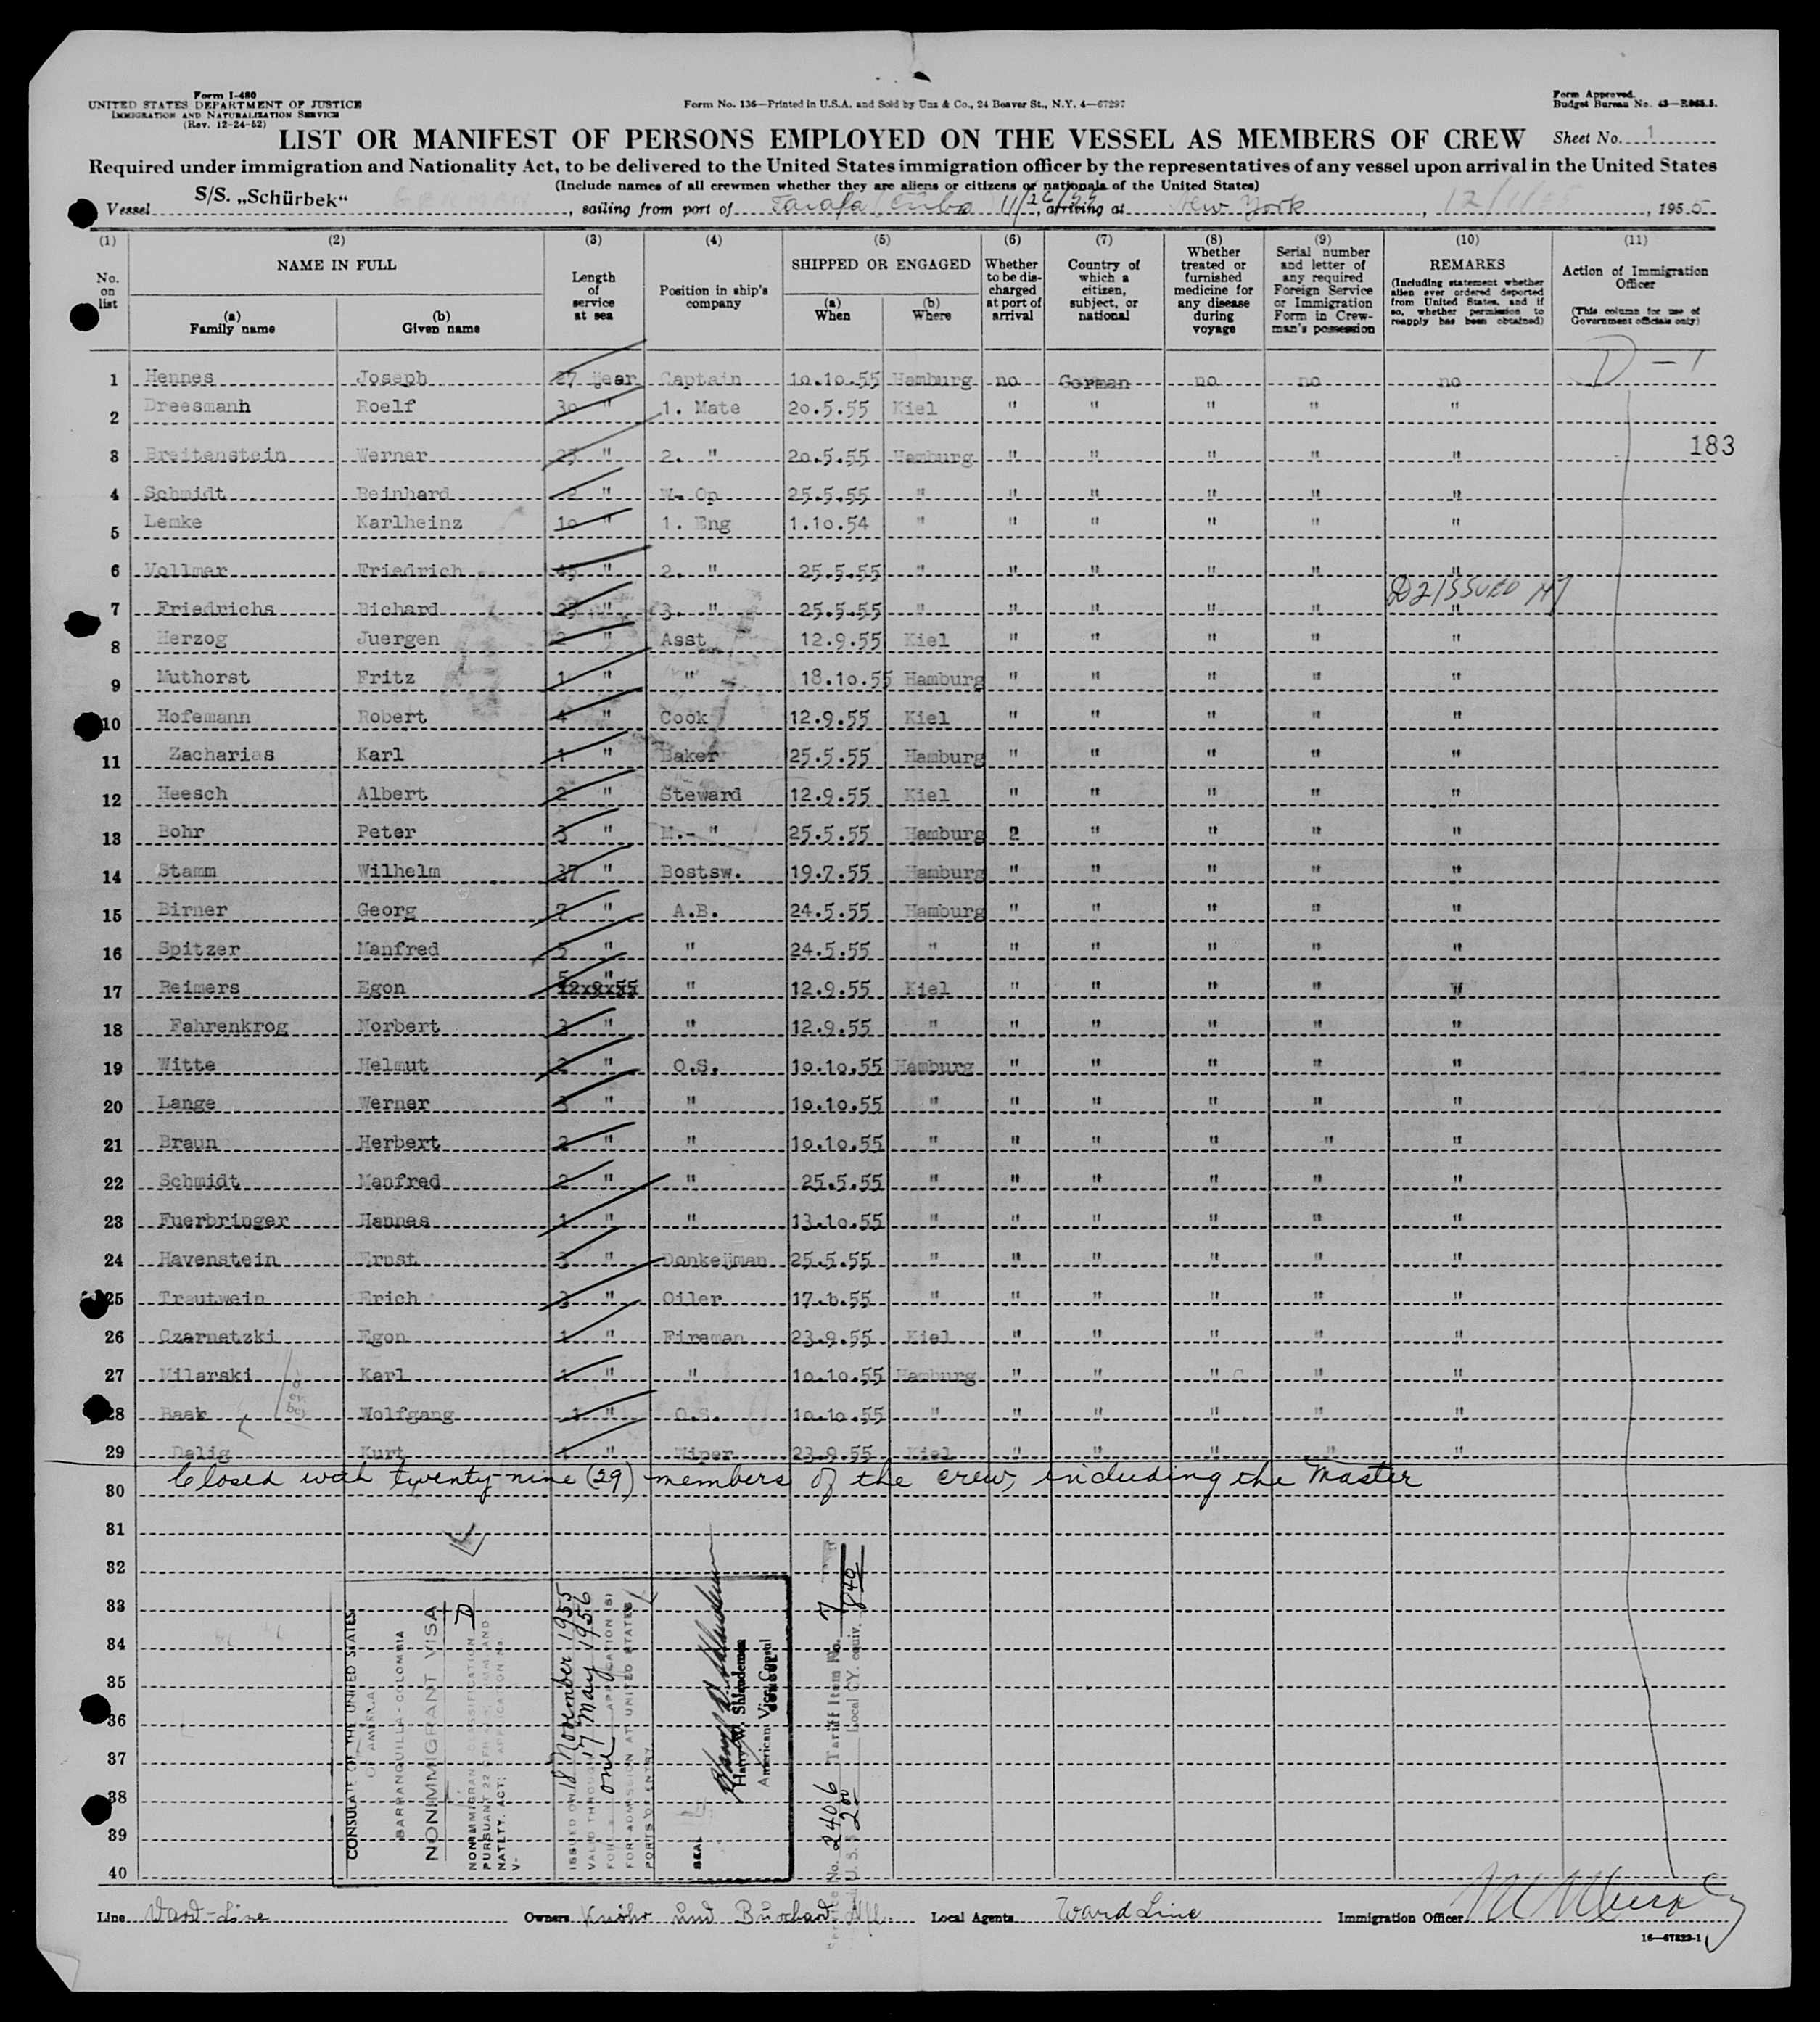 Form I-480
UNITED STATES DEPARTMENT OF JUSTICE
IMMIGRATION AND NATURALIZATION SERVICE
(Rev. 12-24-52)
Form No. 136—Printed in U.S.A. and Sold by Unz & Co., 24 Beaver St., N.Y. 4—67297
Form Approved.
Budget Bureau No. 43—R065.5.
LIST OR MANIFEST OF PERSONS EMPLOYED ON THE VESSEL AS MEMBERS OF CREW
Sheet No. 1
Required under immigration and Nationality Act, to be delivered to the United States immigration officer by the representatives of any vessel upon arrival in the United States
(Include names of all crewmen whether they are aliens or citizens or nationals of the United States)
Vessel S/S. „Schürbek“ GERMAN, sailing from port of Tarafa, Cuba 11/26/55, arriving at New York, 12/1/55, 1955
(1) (2) (3) (4) (5) (6) (7) (8) (9) (10) (11)
No. on list
NAME IN FULL
(a) Family name
(b) Given name
Length of service at sea
Position in ship's company
SHIPPED OR ENGAGED
(a) When
(b) Where
Whether to be discharged at port of arrival
Country of which a citizen, subject, or national
Whether treated or furnished medicine for any disease during voyage
Serial number and letter of any required Foreign Service or Immigration Form in Crewman's possession
REMARKS
(Including statement whether alien ever ordered deported from United States, and if so, whether permission to reapply has been obtained)
Action of Immigration Officer
(This column for use of Government officials only)
1 Hennes Joseph 27 year Captain 10.10.55 Hamburg no German no no no D-1
2 Dreesmanh Roelf 30 " 1. Mate 20.5.55 Kiel " " " " "
183
3 Breitenstein Werner 25 " 2. " 20.5.55 Hamburg " " " " "
4 Schmidt Reinhard 2 " W- Op 25.5.55 " " " " " "
5 Lemke Karlheinz 10 " 1. Eng 1.10.54 " " " " " "
6 Vollmer Friedrich 45 " 2. " 25.5.55 " " " " " "
D2 ISSUED
7 Friedrichs Richard 25 " 3. " 25.5.55 " " " " " "
8 Herzog Juergen 2 " Asst 12.9.55 Kiel " " " " "
9 Muthorst Fritz 1 " " 18.10.55 Hamburg " " " " "
10 Hofemann Robert 4 " Cook 12.9.55 Kiel " " " " "
11 Zacharias Karl 1 " Baker 25.5.55 Hamburg " " " " "
12 Heesch Albert 2 " Steward 12.9.55 Kiel " " " " "
13 Bohr Peter 3 " M.- " 25.5.55 Hamburg 2 " " " "
14 Stamm Wilhelm 37 " Bostsw. 19.7.55 Hamburg " " " " "
15 Birner Georg 7 " A.B. 24.5.55 Hamburg " " " " "
16 Spitzer Manfred 5 " " 24.5.55 " " " " " "
17 Reimers Egon 5 " 12x9x55 " 12.9.55 Kiel " " " " "
18 Fahrenkrog Norbert 3 " " 12.9.55 " " " " " "
19 Witte Helmut 2 " O.S. 10.10.55 Hamburg " " " " "
20 Lange Werner 3 " " 10.10.55 " " " " " "
21 Braun Herbert 2 " " 10.10.55 " " " " " "
22 Schmidt Manfred 2 " " 25.5.55 " " " " " "
23 Fuerbringer Hannes 1 " " 13.10.55 " " " " " "
24 Havenstein Ernst 3 " Donkeijman 25.5.55 " " " " " "
25 Trautwein Erich 3 " Oiler 17.6.55 " " " " " "
26 Czarnetzki Egon 1 " Fireman 23.9.55 Kiel " " " " "
27 Milarski Karl 1 " " 10.10.55 Hamburg " " " " "
28 Baar Wolfgang 1 " O.S. 10.10.55 " " " " " "
29 Dalig Kurt 1 " Wiper 23.9.55 Kiel " " " " "
Closed with twenty-nine (29) members of the crew, including the Master
30
31
32
33
34
35
36
37
38
39
40
CONSULATE OF THE UNITED STATES
OF AMERICA
BARRANQUILLA-COLOMBIA
NONIMMIGRANT VISA
NONIMMIGRANT CLASSIFICATION D
NATLTY. ACT; APPLICATION No.
V-
ISSUED ON 18 November 1955
VALID THROUGH 17 May 1956
FOR one APPLICATION (S)
FOR ADMISSION AT UNITED STATES
PORTS OF ENTRY
SEAL
Harry W. Shlaudeman
American Vice Consul
Service No. 2406 Tariff Item No. 7
U. S. $ 2.00 Local CY. equiv. 8.40
Line Ward-Line Owners Knöhr und Burchard Nfl. Local Agents Ward Line Immigration Officer
16—67822-1